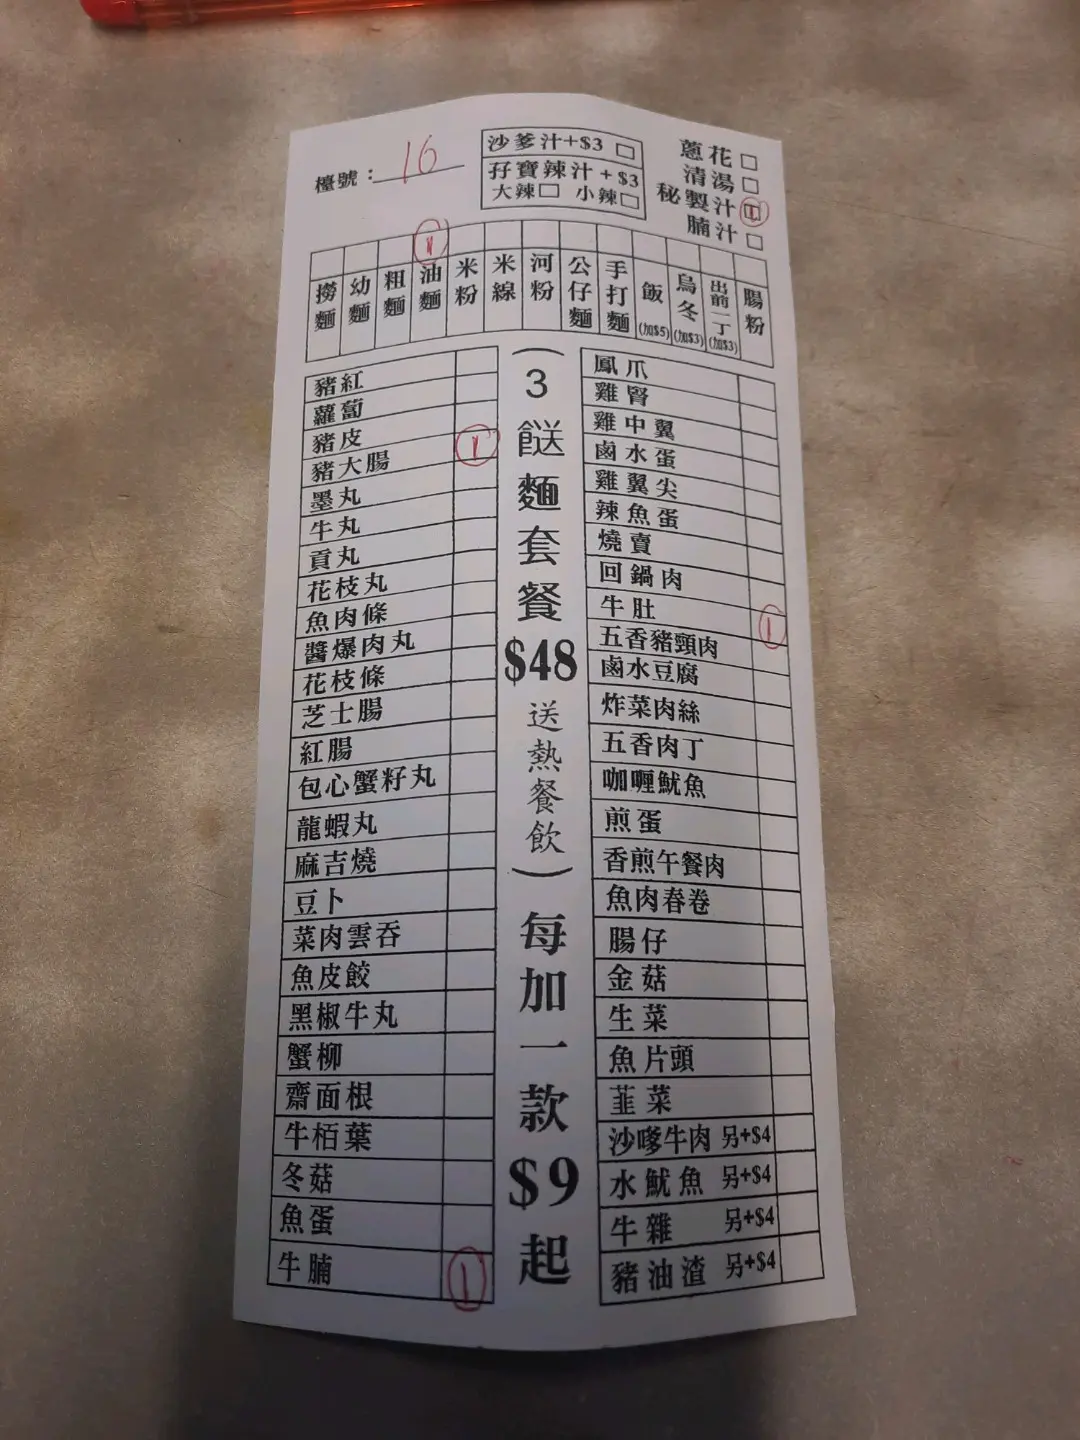 檯號：16
沙爹汁+$3 □
孖寶辣汁 + $3
大辣□ 小辣□
蔥花□
清湯□
秘製汁□
腩汁□
撈麵
幼麵
粗麵
油麵
米粉
米線
河粉
公仔麵
手打麵
飯(加$5)
烏冬(加$3)
出前一丁(加$3)
腸粉
豬紅
蘿蔔
豬皮
豬大腸
墨丸
牛丸
貢丸
花枝丸
魚肉條
醬爆肉丸
花枝條
芝士腸
紅腸
包心蟹籽丸
龍蝦丸
麻吉燒
豆卜
菜肉雲吞
魚皮餃
黑椒牛丸
蟹柳
齋面根
牛栢葉
冬菇
魚蛋
牛腩
（3餸麵套餐$48送熱餐飲）每加一款$9起
鳳爪
雞腎
雞中翼
鹵水蛋
雞翼尖
辣魚蛋
燒賣
回鍋肉
牛肚
五香豬頸肉
鹵水豆腐
炸菜肉絲
五香肉丁
咖喱魷魚
煎蛋
香煎午餐肉
魚肉春卷
腸仔
金菇
生菜
魚片頭
韮菜
沙嗲牛肉 另+$4
水魷魚 另+$4
牛雜 另+$4
豬油渣 另+$4